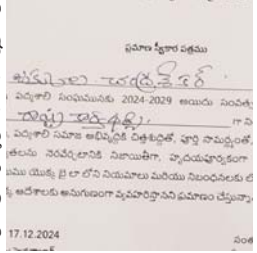 ప్రమాణ స్వీకార పత్రము
చంద్రశేఖర్
పద్మశాలి సంఘమునకు 2024-2029 అయిదు సంవత్స
గా ని
పద్మశాలి సమాజ అభివృద్ధికి చిత్తశుద్ధితో, పూర్తి సామర్థ్యంతో,
తలను నెరవేర్చటానికి నిజాయితీగా, హృదయపూర్వకంగా
ము యొక్క బై లా లోని నియమాలు మరియు నిబంధనలకు లో
ఆదేశాలకు అనుగుణంగా వ్యవహరిస్తానని ప్రమాణం చేస్తున్నా
17.12.2024
సంత